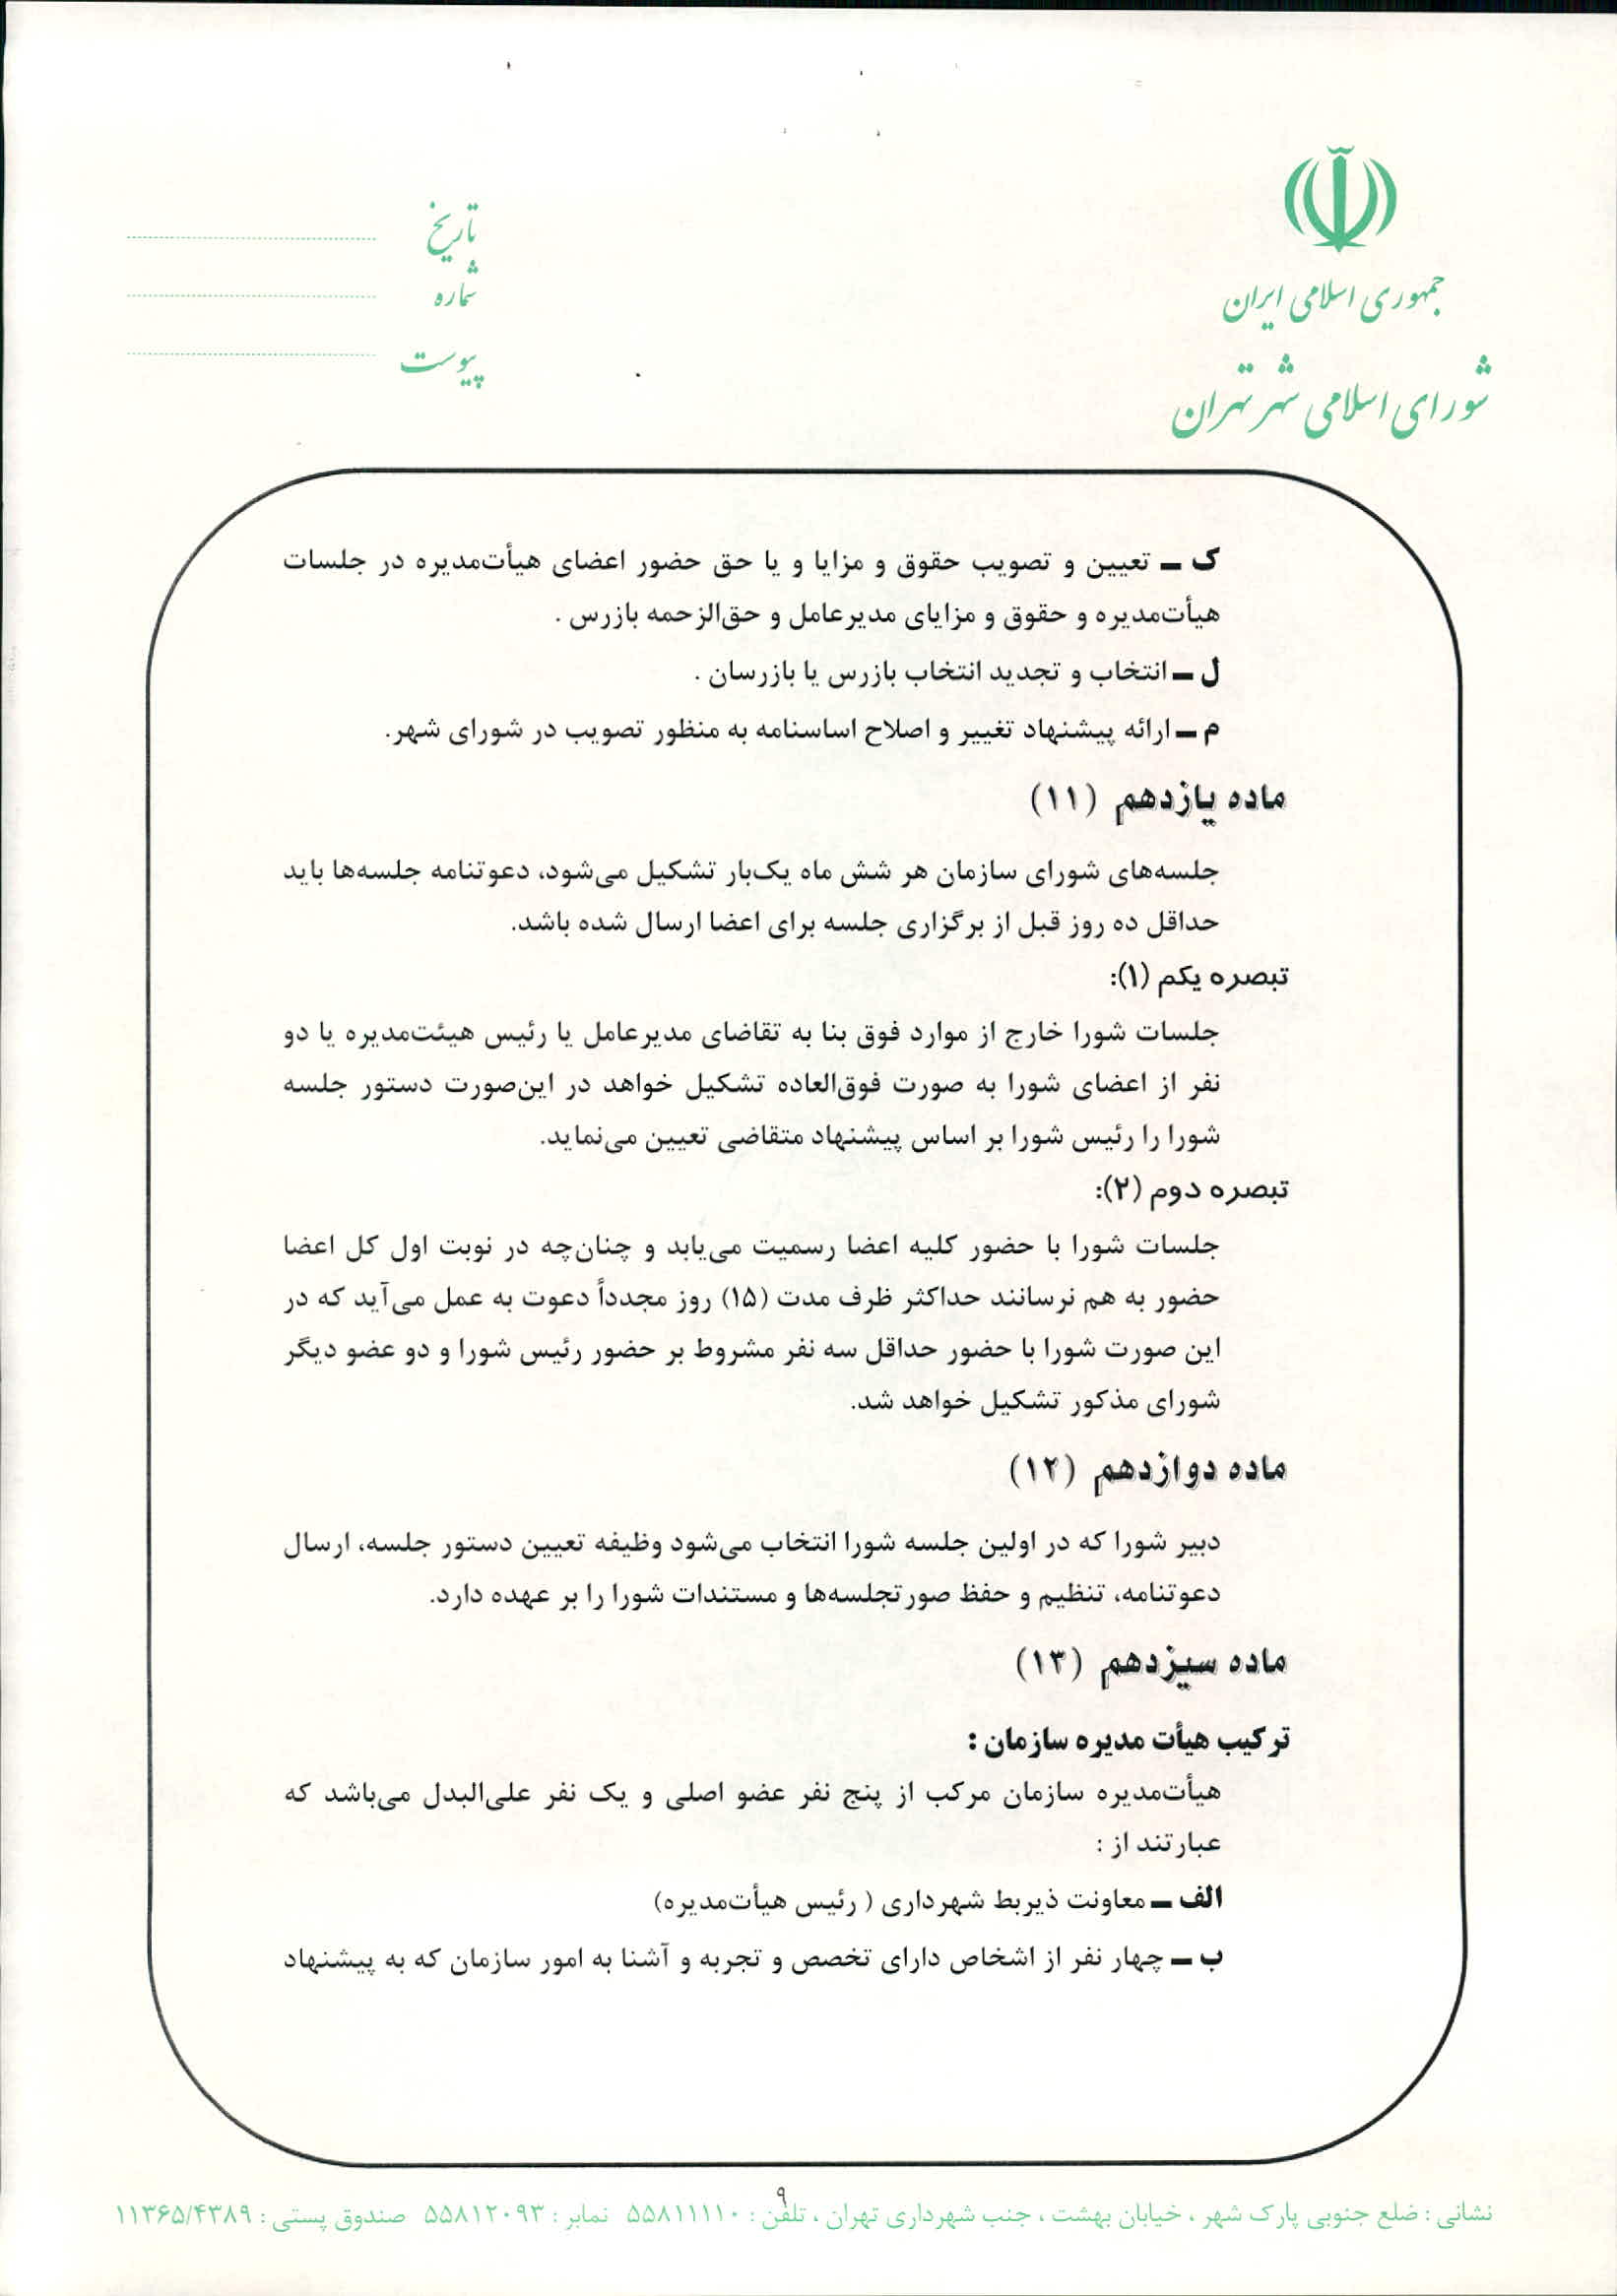 جمهوری اسلامی ایران
شورای اسلامی شهر تهران
تاریخ
شماره
پیوست
ک ـ تعیین و تصویب حقوق و مزایا و یا حق حضور اعضای هیأت‌مدیره در جلسات
هیأت‌مدیره و حقوق و مزایای مدیرعامل و حق‌الزحمه بازرس .
ل ـ انتخاب و تجدید انتخاب بازرس یا بازرسان .
م ـ ارائه پیشنهاد تغییر و اصلاح اساسنامه به منظور تصویب در شورای شهر.
ماده یازدهم (۱۱)
جلسه‌های شورای سازمان هر شش ماه یک‌بار تشکیل می‌شود، دعوتنامه جلسه‌ها باید
حداقل ده روز قبل از برگزاری جلسه برای اعضا ارسال شده باشد.
تبصره یکم (۱):
جلسات شورا خارج از موارد فوق بنا به تقاضای مدیرعامل یا رئیس هیئت‌مدیره یا دو
نفر از اعضای شورا به صورت فوق‌العاده تشکیل خواهد در این‌صورت دستور جلسه
شورا را رئیس شورا بر اساس پیشنهاد متقاضی تعیین می‌نماید.
تبصره دوم (۲):
جلسات شورا با حضور کلیه اعضا رسمیت می‌یابد و چنان‌چه در نوبت اول کل اعضا
حضور به هم نرسانند حداکثر ظرف مدت (۱۵) روز مجدداً دعوت به عمل می‌آید که در
این صورت شورا با حضور حداقل سه نفر مشروط بر حضور رئیس شورا و دو عضو دیگر
شورای مذکور تشکیل خواهد شد.
ماده دوازدهم (۱۲)
دبیر شورا که در اولین جلسه شورا انتخاب می‌شود وظیفه تعیین دستور جلسه، ارسال
دعوتنامه، تنظیم و حفظ صورتجلسه‌ها و مستندات شورا را بر عهده دارد.
ماده سیزدهم (۱۳)
ترکیب هیأت مدیره سازمان :
هیأت‌مدیره سازمان مرکب از پنج نفر عضو اصلی و یک نفر علی‌البدل می‌باشد که
عبارتند از :
الف ـ معاونت ذیربط شهرداری ( رئیس هیأت‌مدیره)
ب ـ چهار نفر از اشخاص دارای تخصص و تجربه و آشنا به امور سازمان که به پیشنهاد
۹
نشانی : ضلع جنوبی پارک شهر ، خیابان بهشت ، جنب شهرداری تهران ، تلفن : ۵۵۸۱۱۱۱۰ نمابر : ۵۵۸۱۲۰۹۳ صندوق پستی : ۱۱۳۶۵/۴۳۸۹